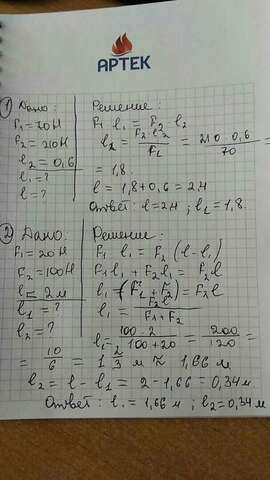 АРТЕК
① Дано:
F₁=70Н
F₂=210Н
l₂=0,6
l₁=?
l=?
Решение:
F₁ l₁ = F₂ l₂
l₂ = F₂ l₂ / F₁ = 210·0,6 / 70 =
= 1,8.
l = 1,8+0,6 = 2м
Ответ: l=2м; l₁=1,8.
② Дано:
F₁=20Н
F₂=100Н
l=2м
l₁=?
l₂=?
Решение:
F₁ l₁ = F₂ (l-l₁)
F₁ l₁ + F₂ l₁ = F₂ l
l₁ (F₁+F₂) = F₂ l
l₁ = F₂ l / F₁+F₂
l₁ = 100·2 / 100+20 = 200 / 120 =
= 10/6 = 1 2/3 м ≈ 1,66 м
l₂ = l - l₁ = 2 - 1,66 = 0,34 м
Ответ: l₁ = 1,66 м; l₂=0,34 м